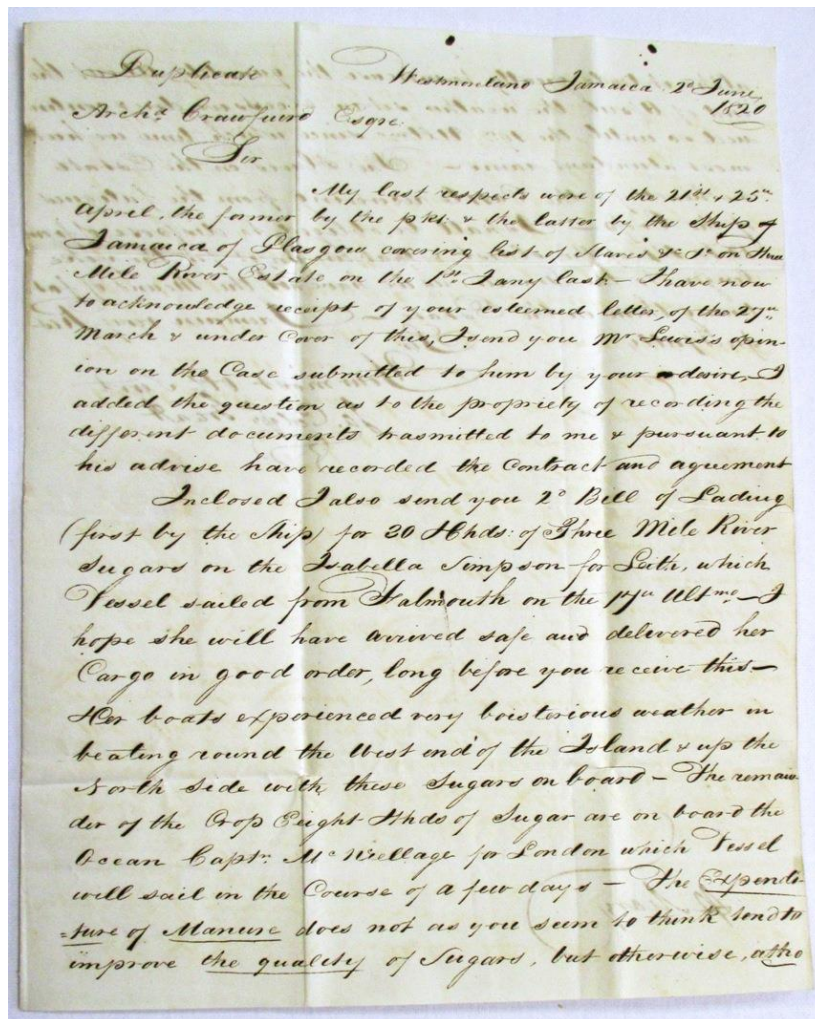 Duplicate
Westmorland Jamaica 2d June
1820
Archd. Crawfuird Esqre
Sir
My last respects were of the 21st + 25th
April, the former by the pkt. & the latter by the Ship
Jamaica of Glasgow covering list of Slaves &c &c on Three
Mile River Estate on the 1st Jany last - I have now
to acknowledge receipt of your esteemed letter, of the 27th
March & under Cover of this, I send you Mr Lewis's opin-
ion on the Case submitted to him by your desire, I
added the question as to the propriety of recording the
different documents trasmitted to me & pursuant to
his advise have recorded the Contract and agument
Inclosed I also send you 2d Bill of Lading
(first by the Ship) for 30 Hhds: of Three Mile River
Sugars on the Isabella Simpson for Leith, which
Vessel sailed from Falmouth on the 17th Ultmo - I
hope she will have arrived safe and delivered her
Cargo in good order, long before you receive this -
Her boats experienced very boisterious weather in
beating round the West end of the Island & up the
North Side with these Sugars on board - The remain-
der of the Crop Eeight Hhds of Sugar are on board the
Ocean Captn. for London which Vessel
will sail in the Course of a few days - The Expendi-
=ture of Manure does not as you seem to think tend to
improve the quality of Sugars, but otherwise, altho